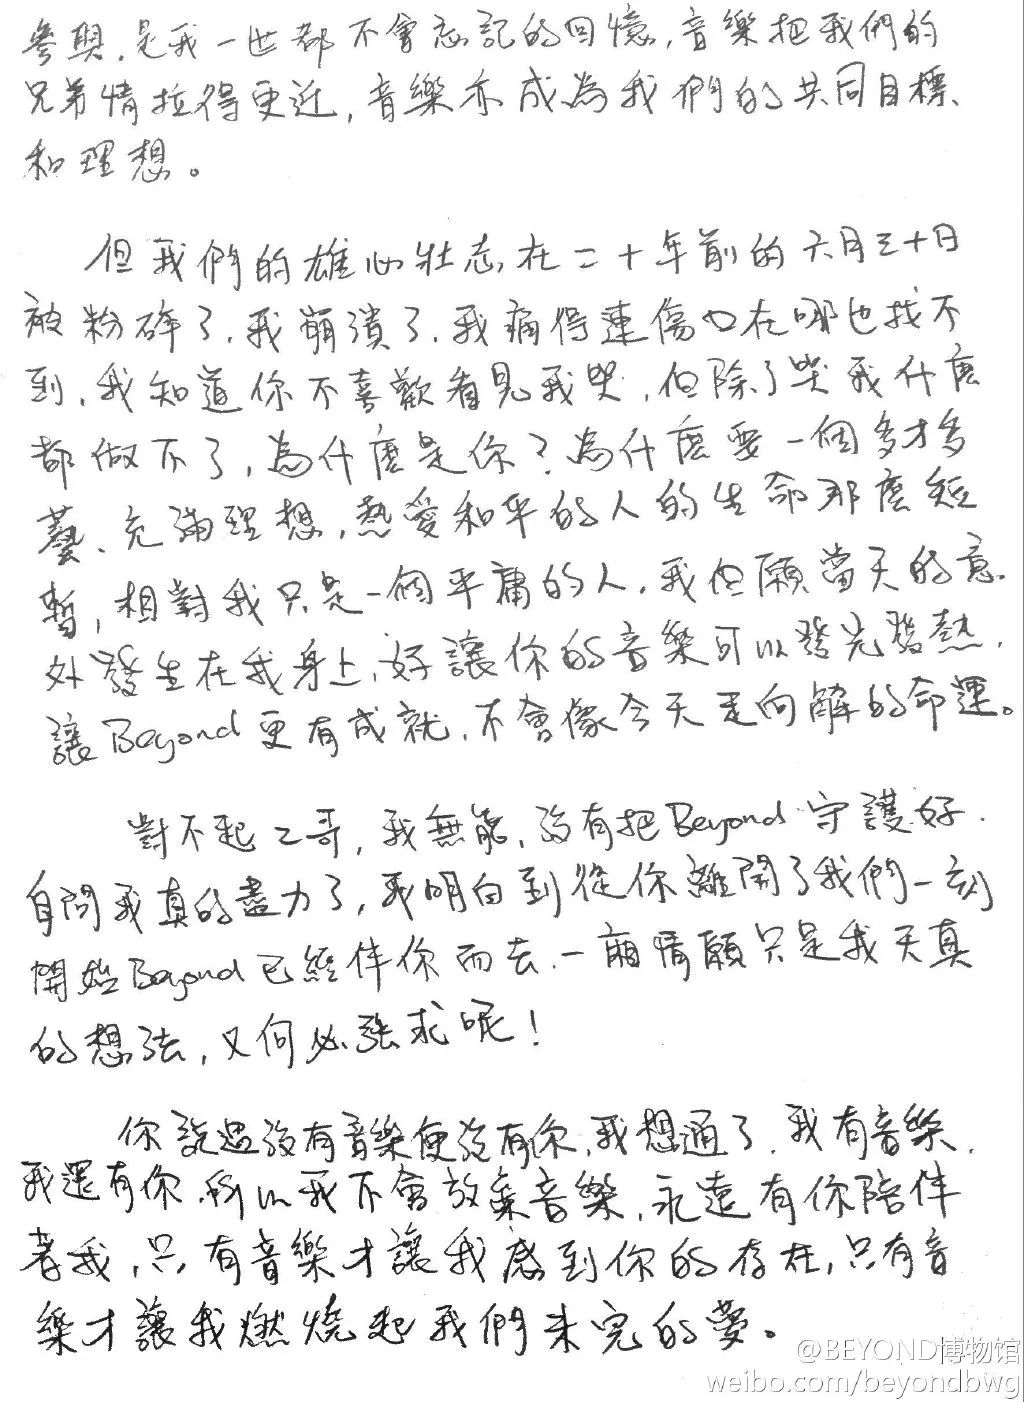 參與，是我一世都不會忘記的回憶，音樂把我們的
兄弟情拉得更近，音樂亦成為我們的共同目標、
和理想。
但我們的雄心壯志在二十年前的六月三十日
被粉碎了，我崩潰了，我痛得連傷口在哪也找不
到，我知道你不喜歡看見我哭，但除了哭我什麼
都做不了，為什麼是你？為什麼要一個多才多
藝、充滿理想，熱愛和平的人的生命那麼短
暫，相對我只是一個平庸的人，我但願當天的意
外發生在我身上，好讓你的音樂可以發光發熱，
讓Beyond更有成就，不會像今天走向解的命運。
對不起二哥，我無能，沒有把Beyond守護好，
自問我真的盡力了，我明白到從你離開了我們一刻
開始Beyond已經伴你而去，一廂情願只是我天真
的想法，又何必強求呢！
你說過沒有音樂便沒有你，我想通了，我有音樂，
我還有你，所以我不會放棄音樂，永遠有你陪伴
著我，只有音樂才讓我感到你的存在，只有音
樂才讓我燃燒起我們未完的夢。
@BEYOND博物馆
weibo.com/beyondbwg